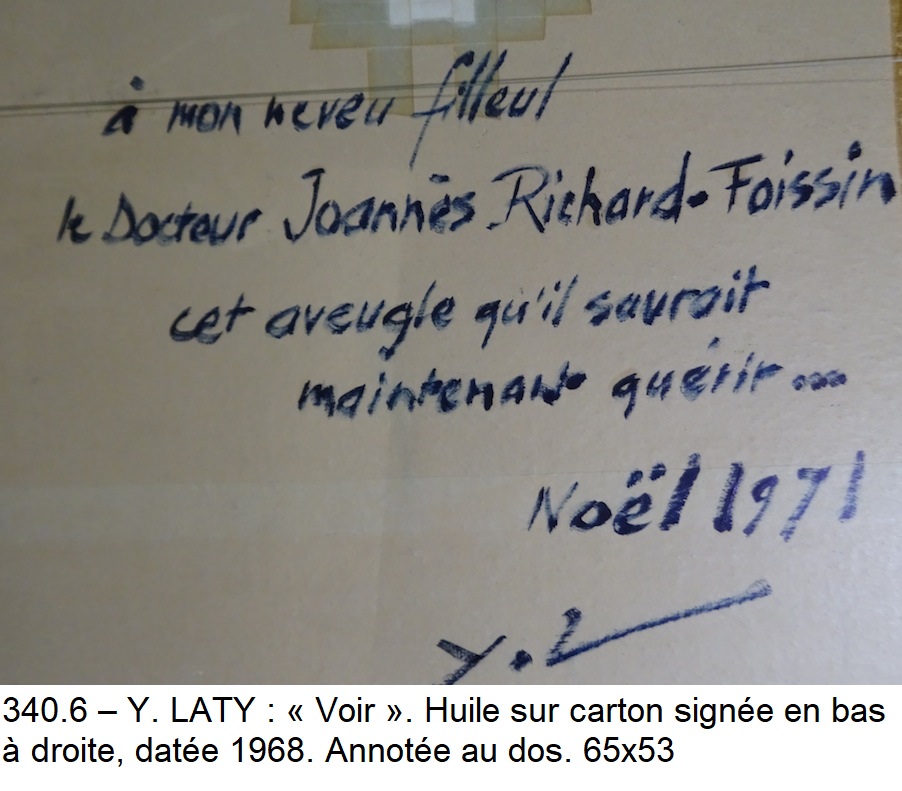 à mon neveu filleul
le Docteur Joannès Richard-Foissin
cet aveugle qu'il saurait
maintenant guérir...
Noël 1971
Y. L
340.6 – Y. LATY : « Voir ». Huile sur carton signée en bas
à droite, datée 1968. Annotée au dos. 65x53